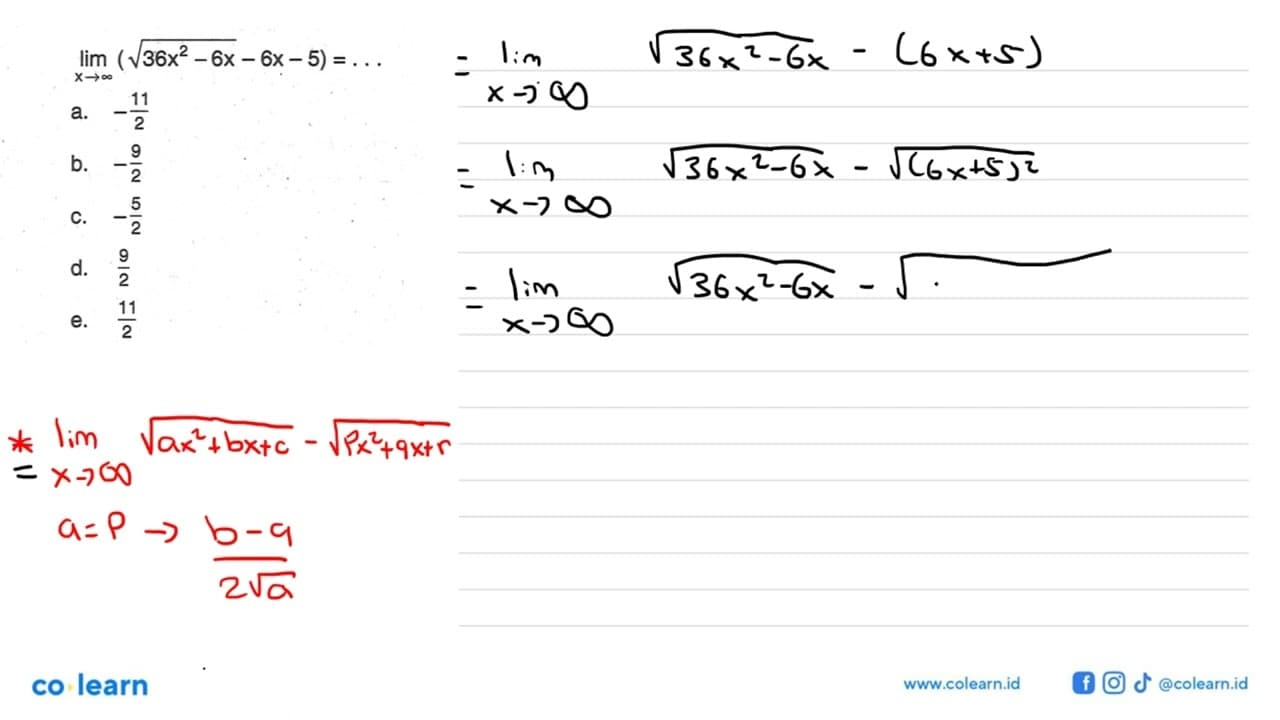 lim (√36x² – 6x – 6x – 5) = . . .
x→∞
a. –11/2
b. –9/2
c. –5/2
d. 9/2
e. 11/2
= lim √36x²-6x - (6x+5)
x→∞
= lim √36x²-6x - √(6x+5)²
x→∞
= lim √36x²-6x - √
x→∞
* lim √ax²+bx+c - √px²+qx+r
= x→∞
a=p → b-q
2√a
co learn
www.colearn.id
@colearn.id